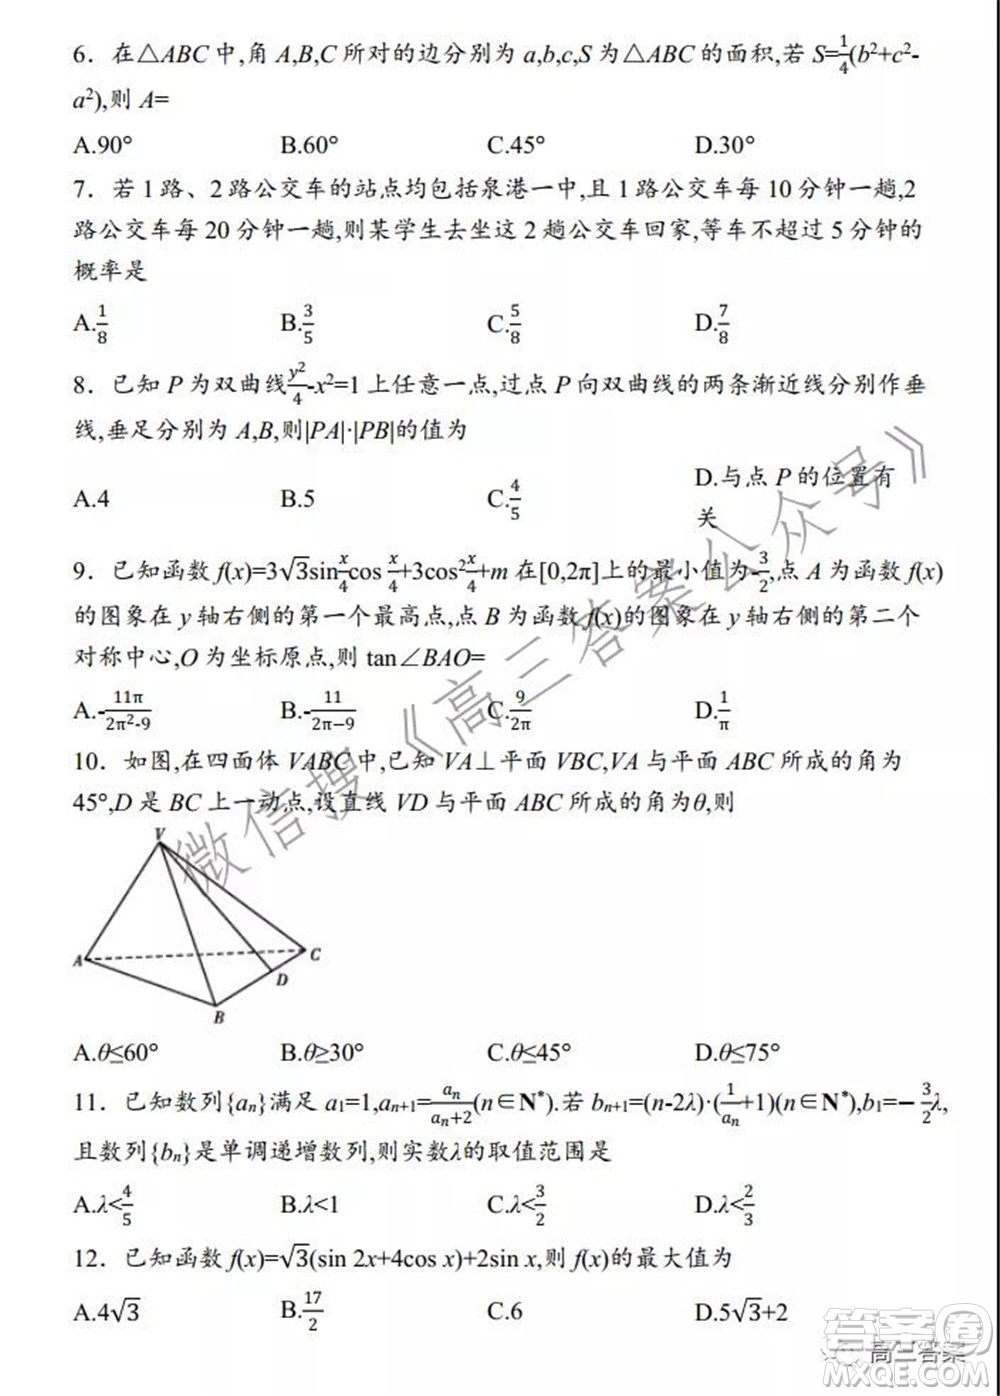 6．在△ABC中,角A,B,C所对的边分别为a,b,c,S为△ABC的面积,若S=1/4(b²+c²-
a²),则A=
A.90° B.60° C.45° D.30°
7．若1路、2路公交车的站点均包括泉港一中,且1路公交车每10分钟一趟,2
路公交车每20分钟一趟,则某学生去坐这2趟公交车回家,等车不超过5分钟的
概率是
A.1/8 B.3/5 C.5/8 D.7/8
8．已知P为双曲线y²/4-x²=1上任意一点,过点P向双曲线的两条渐近线分别作垂
线,垂足分别为A,B,则|PA|·|PB|的值为
A.4 B.5 C.4/5 D.与点P的位置有
关
9．已知函数f(x)=3√3sin x/4 cos x/4+3cos² x/4+m在[0,2π]上的最小值为-3/2,点A为函数f(x)
的图象在y轴右侧的第一个最高点,点B为函数f(x)的图象在y轴右侧的第二个
对称中心,O为坐标原点,则tan∠BAO=
A.-11π/(2π²-9) B.-11/(2π-9) C.9/2π D.1/π
10．如图,在四面体VABC中,已知VA⊥平面VBC,VA与平面ABC所成的角为
45°,D是BC上一动点,设直线VD与平面ABC所成的角为θ,则
V
A
C
D
B
A.θ≤60° B.θ≥30° C.θ≤45° D.θ≤75°
11．已知数列{aₙ}满足a₁=1,aₙ₊₁=aₙ/(aₙ+2)(n∈N*).若bₙ₊₁=(n-2λ)·(1/aₙ+1)(n∈N*),b₁=-3/2λ,
且数列{bₙ}是单调递增数列,则实数λ的取值范围是
A.λ<4/5 B.λ<1 C.λ<3/2 D.λ<2/3
12．已知函数f(x)=√3(sin 2x+4cos x)+2sin x,则f(x)的最大值为
A.4√3 B.17/2 C.6 D.5√3+2
微信搜《高三答案公众号》
答案圈
MXQE.COM
高三答案